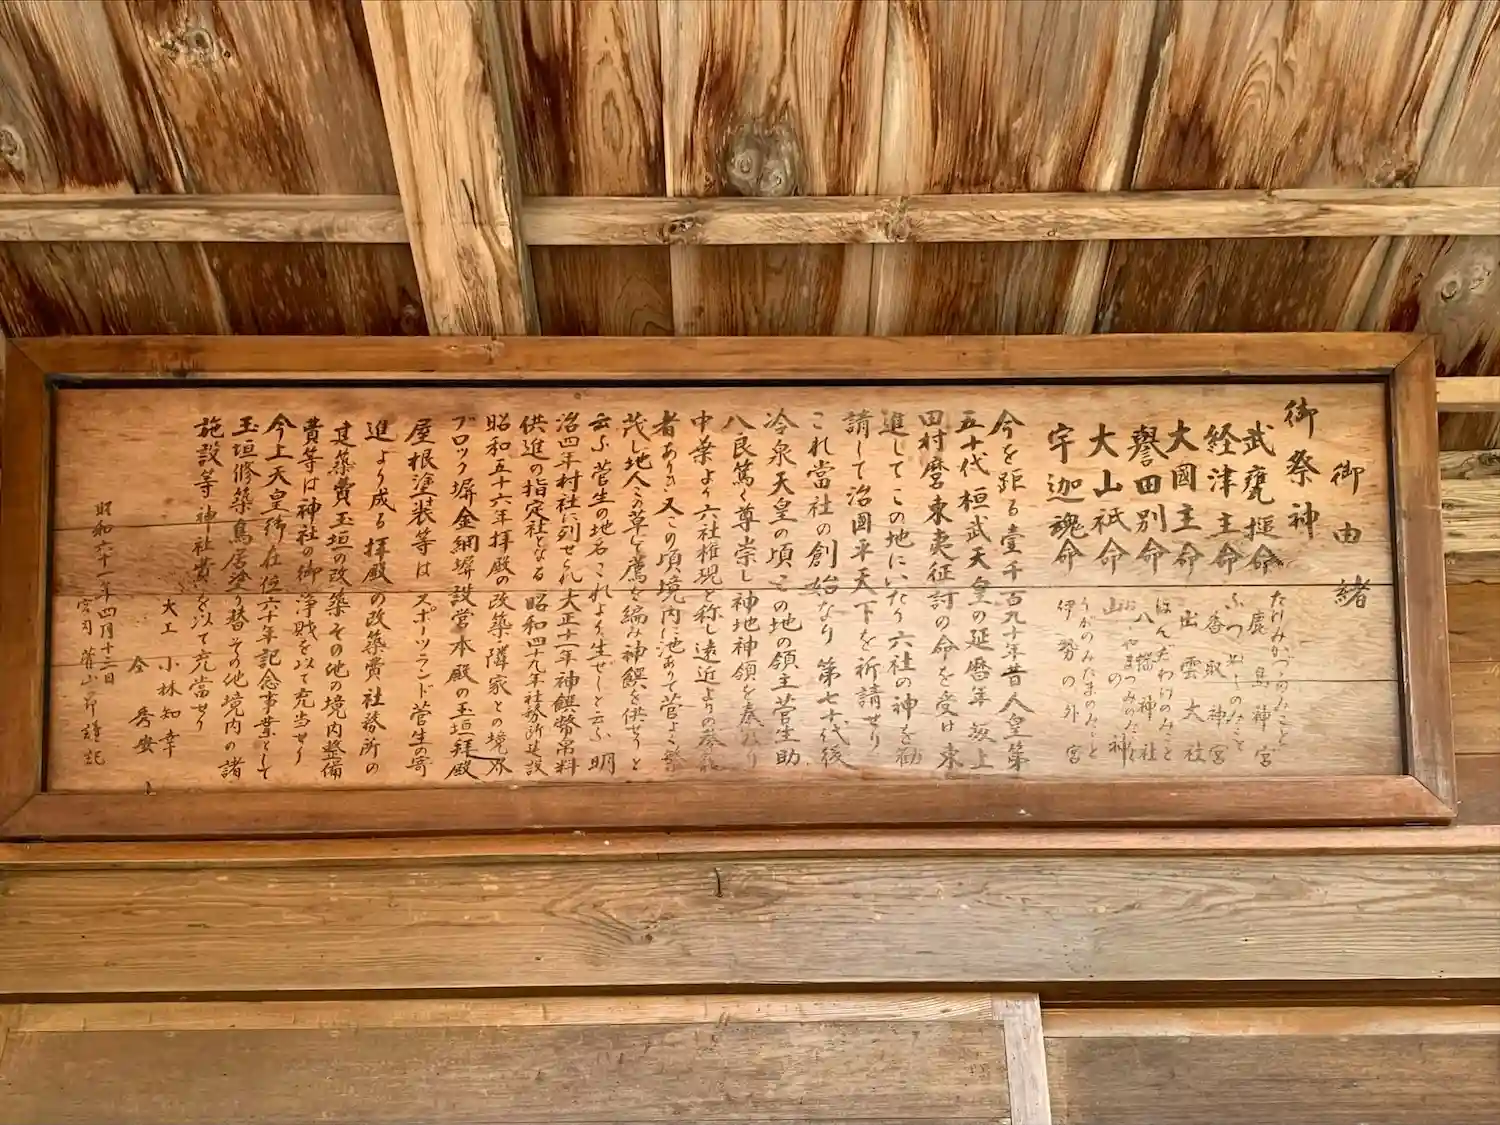 御由緒
御祭神
武甕槌命 鹿島神宮
経津主命 香取神宮
大國主命 出雲大社
譽田別命 ほんだわけのみこと 八幡神社
大山祇命 おゝやまつみのみこと 山の神
宇迦魂命 うがのみたまのみこと 伊勢の外宮
今を距る壹千百九十年昔人皇第
五十代桓武天皇の延暦年坂上
田村麿東夷征討の命を受け東
進してこの地にいたり六社の神を勧
請して治國平天下を祈請せり
これ當社の創始なり第七十代後
冷泉天皇の頃この地の領主菅生助
八良篤く尊崇し神地神領を奉
中葉より六社権現と称し遠近よりの参
者ありき又この頃境内に池ありて菅よく繁
茂し地人この草にて薦を編み神饌を供せりと
云ふ菅生の地名これより生ぜしと云ふ明
治四年村社に列せられ大正十一年神饌幣帛料
供進の指定社となる昭和四十九年社務所建設
昭和五十六年拝殿の改築隣家との境界
ブロック塀金網塀設営本殿の玉垣拝殿
屋根塗装等はスポーツランド菅生の寄
進より成る拝殿の改築費社務所の
建築費玉垣の改築その他の境内整備
費等は神社の御浄財を以て充当せり
今上天皇御在位六十年記念事業として
玉垣修築鳥居塗り替その他境内の諸
施設等神社費を以て充當せり
昭和六十一年四月十三日
宮司 謹記
大工 小林知幸
仝 秀安